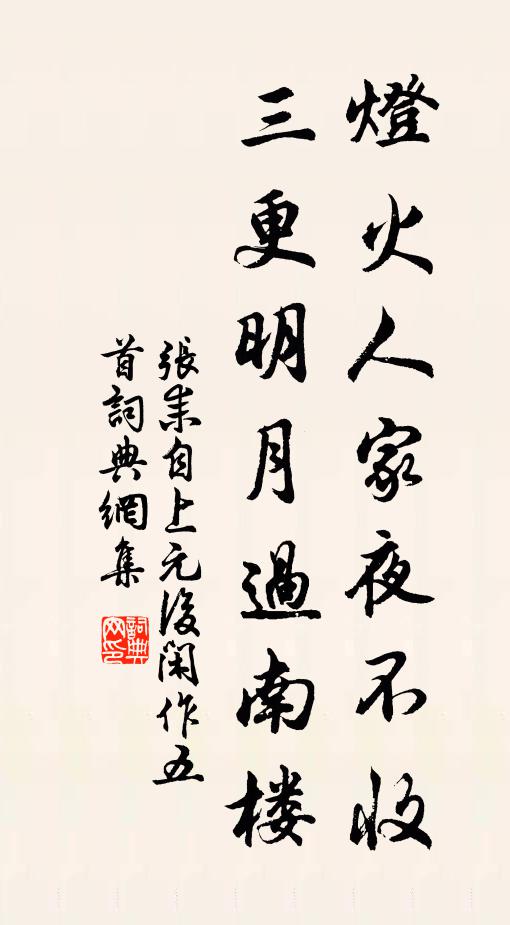 燈火人家夜不收
三更明月過南楼
張耒自上元後閑作五
首詞典網集
詞典网印